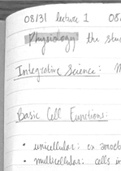 08/31 lecture 1 08
Physiology: the stu
Integrative Science: M
Basic Cell Functions:
• unicellular: ex amoeb
• multicellular: cells in